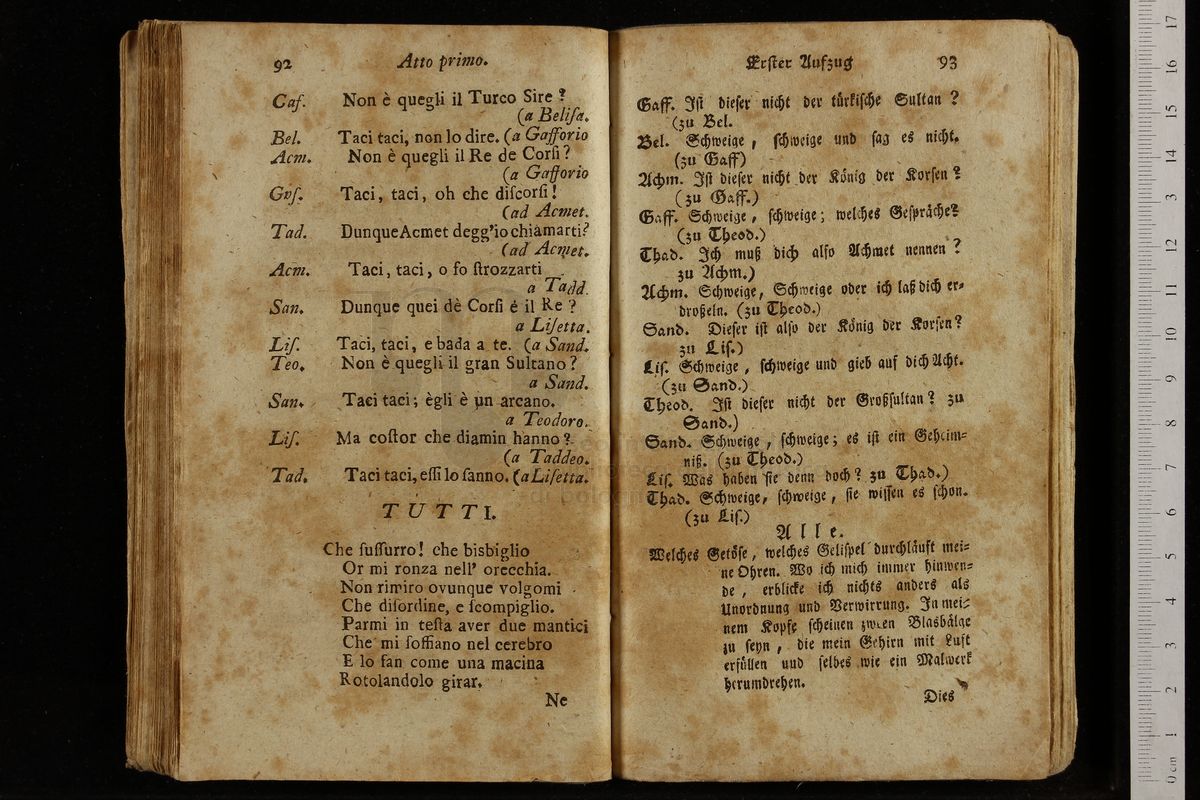 92 Atto primo.
Caf. Non è quegli il Turco Sire ?
(a Beliſa.
Bel. Taci taci, non lo dire. (a Gafforio
Acm. Non è quegli il Re de Corſi ?
(a Gafforio
Gvſ. Taci, taci, oh che diſcorſi !
(ad Acmet.
Tad. Dunque Acmet degg'io chiamarti?
(ad Acmet.
Acm. Taci, taci, o fo ſtrozzarti
a Tadd.
San. Dunque quei dè Corſi è il Re ?
a Liſetta.
Liſ. Taci, taci, e bada a te. (a Sand.
Teo. Non è quegli il gran Sultano ?
a Sand.
San. Taci taci; ègli è un arcano.
a Teodoro.
Liſ. Ma coſtor che diamin hanno ?
(a Taddeo.
Tad. Taci taci, eſſi lo ſanno. (a Liſetta.
TUTTI.
Che ſuſſurro! che bisbiglio
Or mi ronza nell' orecchia.
Non rimiro ovunque volgomi
Che diſordine, e ſcompiglio.
Parmi in teſta aver due mantici
Che mi ſoffiano nel cerebro
E lo fan come una macina
Rotolandolo girar.
Ne
Erſter Aufzug 93
Gaff. Iſt dieſer nicht der türkiſche Sultan ?
(zu Bel.
Bel. Schweige, ſchweige und ſag es nicht.
(zu Gaff)
Achm. Iſt dieſer nicht der König der Korſen ?
(zu Gaff.)
Gaff. Schweige, ſchweige; welches Geſpräche?
(zu Theod.)
Thad. Ich muß dich alſo Achmet nennen ?
zu Achm.)
Achm. Schweige, Schweige oder ich laß dich er-
droßeln. (zu Theod.)
Sand. Dieſer iſt alſo der König der Korſen?
zu Liſ.)
Liſ. Schweige, ſchweige und gieb auf dich Acht.
(zu Sand.)
Theod. Iſt dieſer nicht der Großſultan? zu
Sand.)
Sand. Schweige, ſchweige; es iſt ein Geheim-
niß. (zu Theod.)
Liſ. Was haben ſie denn doch? zu Thad.)
Thad. Schweige, ſchweige, ſie wiſſen es ſchon.
(zu Liſ.)
Alle.
Welches Getöſe, welches Geliſpel durchläuft mei-
ne Ohren. Wo ich mich immer hinwen-
de, erblicke ich nichts anders als
Unordnung und Verwirrung. In mei-
nem Kopfe ſcheinen zween Blasbälge
zu ſeyn, die mein Gehirn mit Luft
erfüllen uud ſelbes wie ein Malwerk
herumdrehen.
Dies